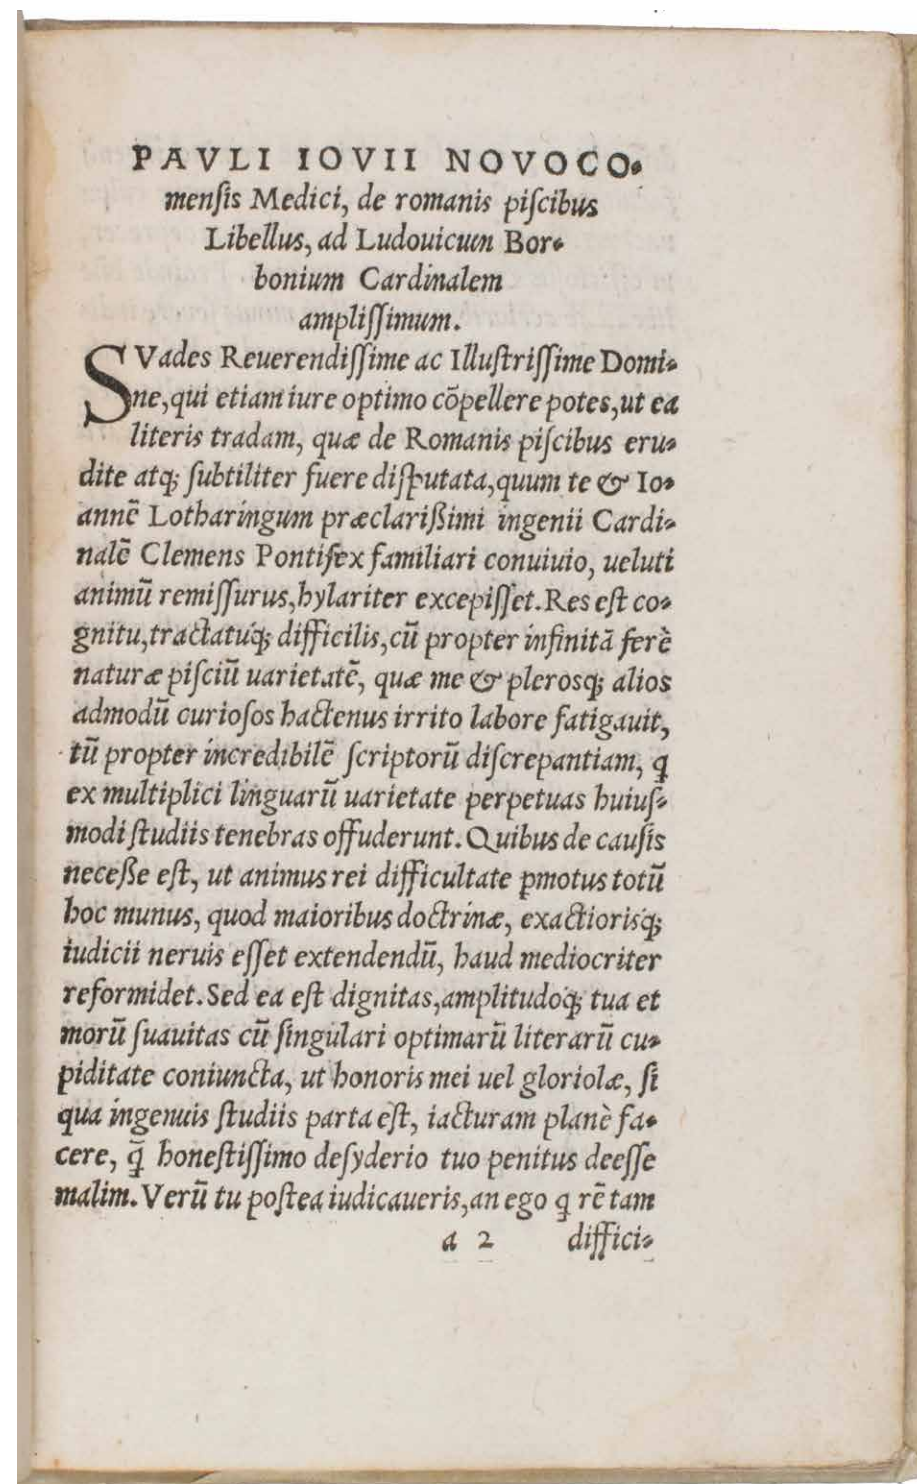 PAVLI IOVII NOVOCO-
menſis Medici, de romanis piſcibus
Libellus, ad Ludouicum Bor-
bonium Cardinalem
ampliſſimum.
SVades Reuerendiſſime ac Illuſtriſſime Domi-
ne, qui etiam iure optimo cōpellere potes, ut ea
literis tradam, quæ de Romanis piſcibus eru-
dite atq; ſubtiliter fuere diſputata, quum te & Io-
annē Lotharingum præclarißimi ingenii Cardi-
nalē Clemens Pontifex familiari conuiuio, ueluti
animū remiſſurus, hylariter excepiſſet. Res eſt co-
gnitu, tractatúq; difficilis, cū propter infinitā ferè
naturæ piſciū uarietatē, quæ me & plerosq; alios
admodū curioſos hactenus irrito labore fatigauit,
tū propter incredibilē ſcriptorū diſcrepantiam, ꝗ
ex multiplici linguarū uarietate perpetuas huiuſ-
modi ſtudiis tenebras offuderunt. Quibus de cauſis
neceße eſt, ut animus rei difficultate ꝑmotus totū
hoc munus, quod maioribus doctrinæ, exactiorisq́;
iudicii neruis eſſet extendendū, haud mediocriter
reformidet. Sed ea eſt dignitas, amplitudoq́; tua et
morū ſuauitas cū ſingulari optimarū literarū cu-
piditate coniuncta, ut honoris mei uel gloriolæ, ſi
qua ingenuis ſtudiis parta eſt, iacturam planè fa-
cere, q̄ honeſtiſſimo deſyderio tuo penitus deeſſe
malim. Verū tu poſtea iudicaueris, an ego ꝗ rē tam
a 2 diffici-